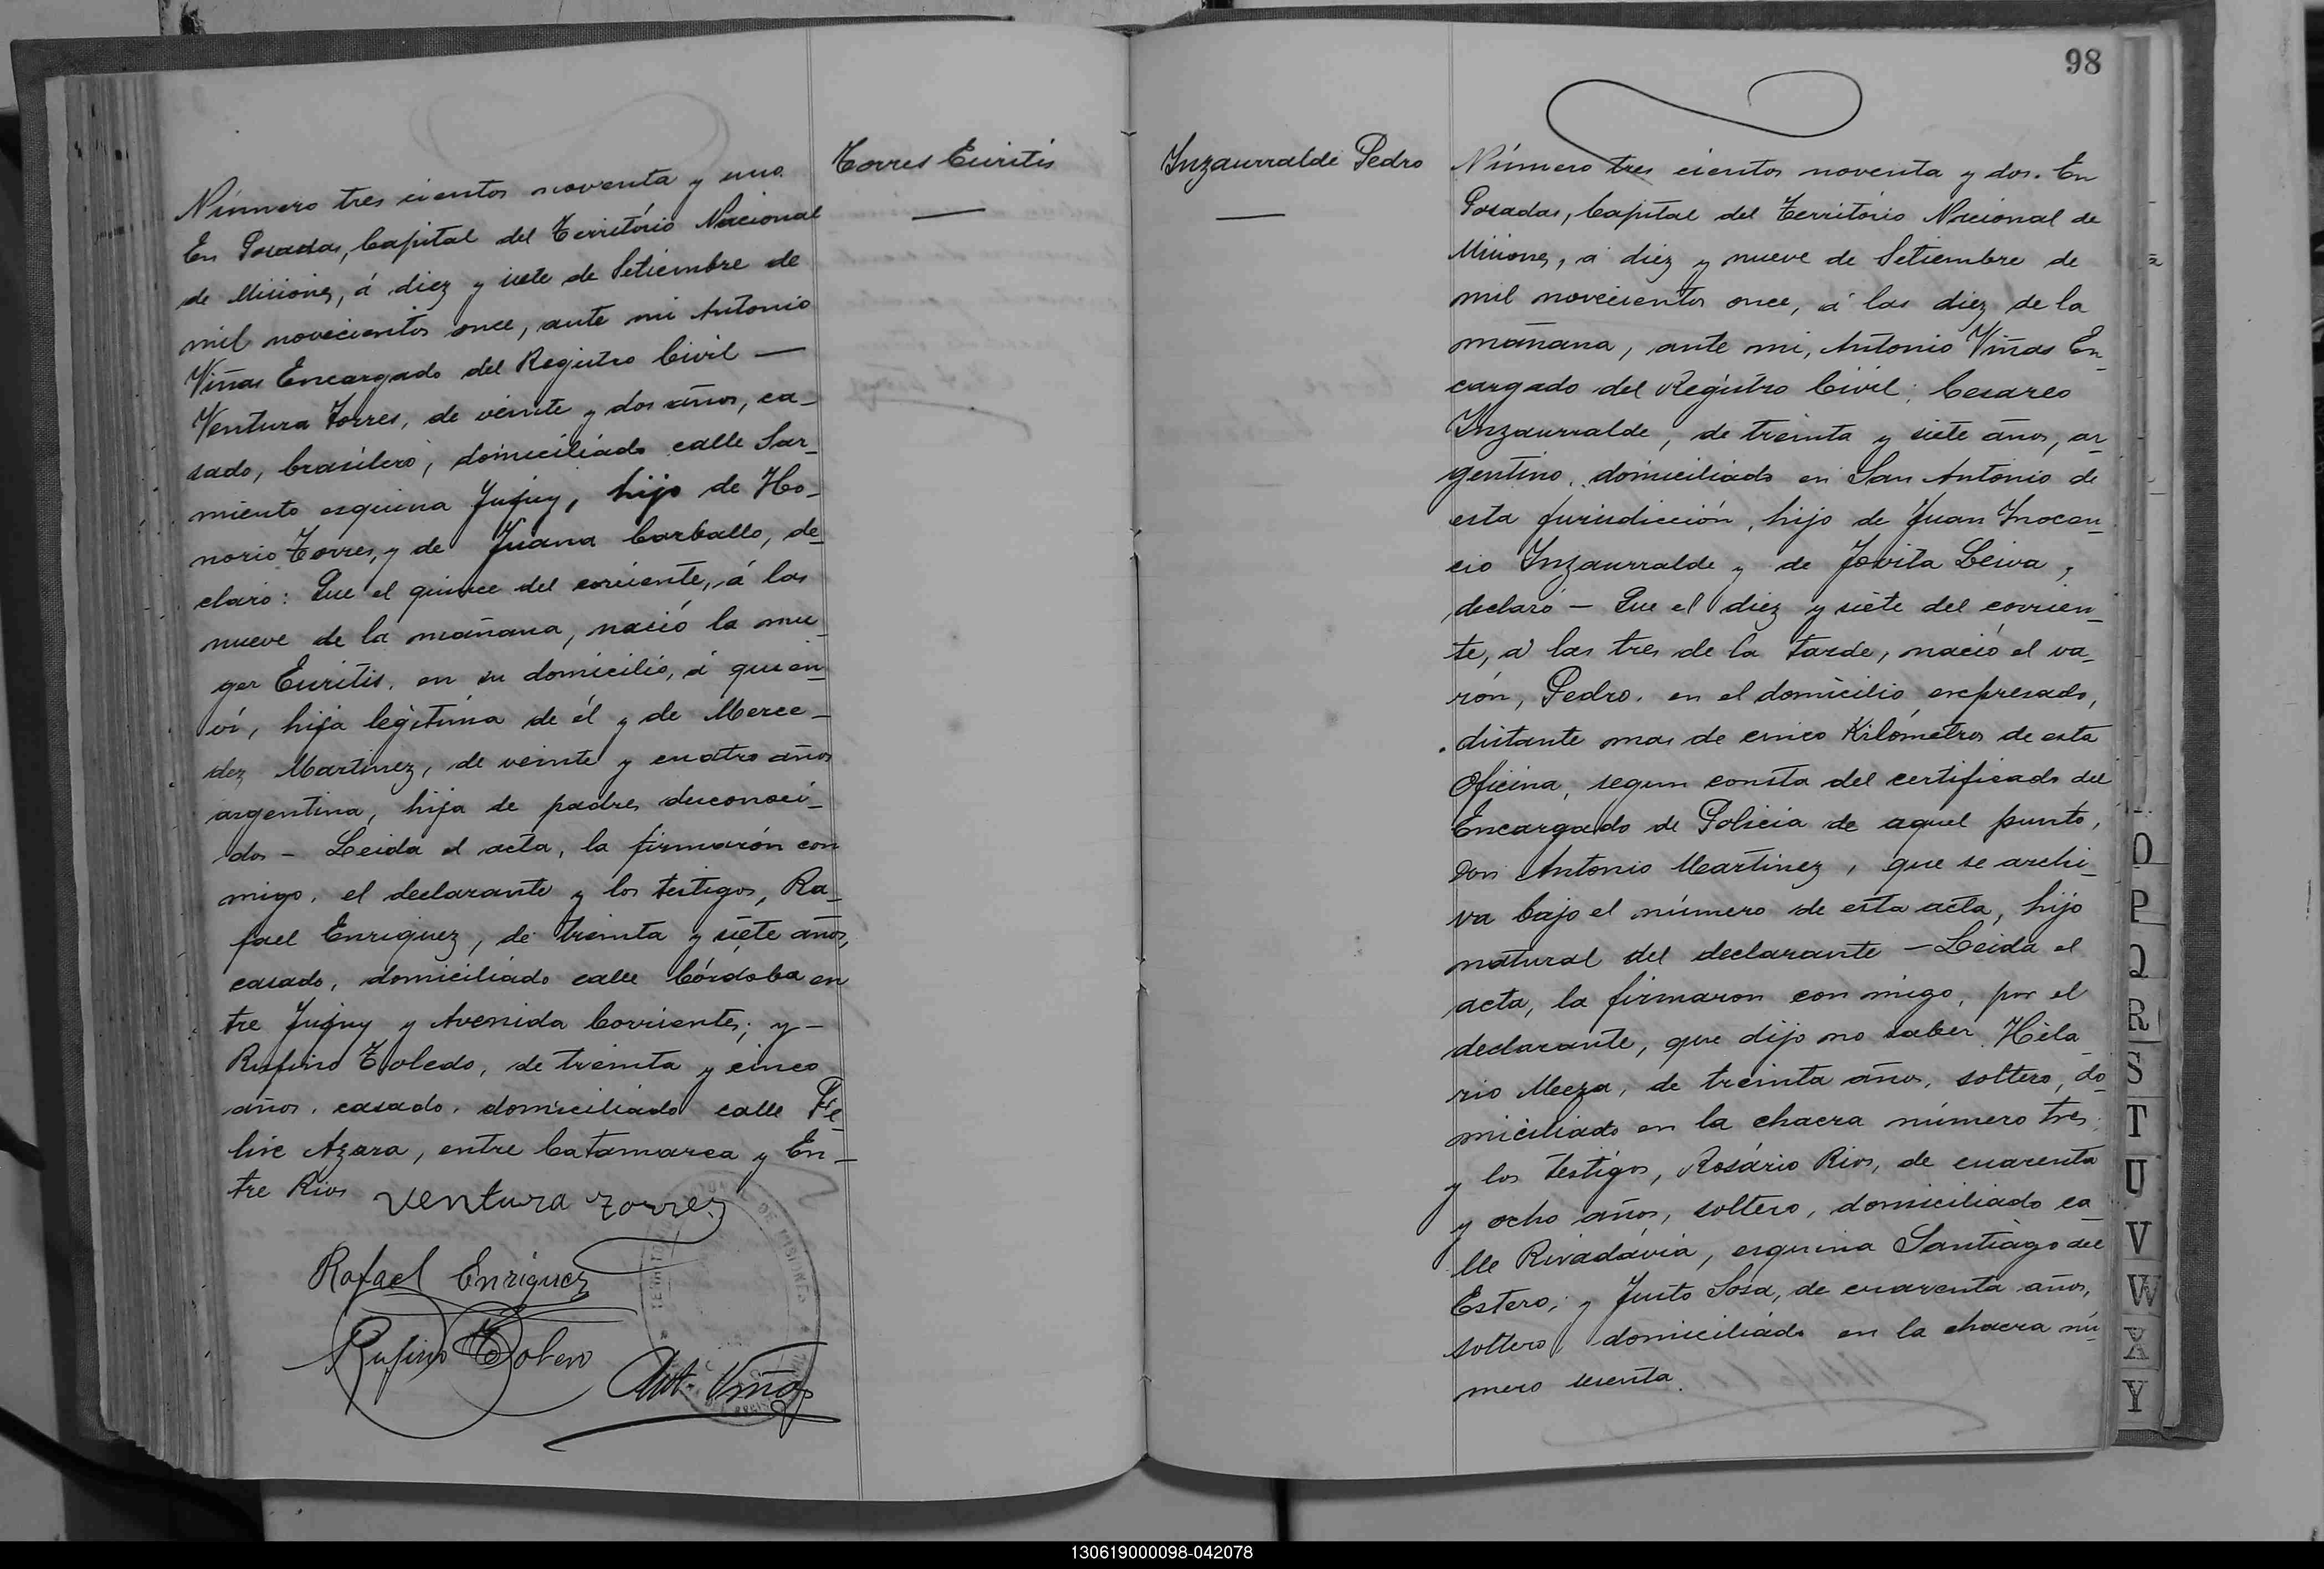 Torres Euritis
Número tres cientos noventa y uno.
En Posadas, Capital del Território Nacional
de Misiones, á diez y siete de Setiembre de
mil novecientos once, ante mi Antonio
Viñas Encargado del Registro Civil —
Ventura Torres, de veinte y dos años, ca-
sado, brasilero, domiciliado calle Sar-
miento esquina Jujuy, hijo de Ho-
norio Torres, y de Juana Carballo, de-
claró: Que el quince del corriente, á las
nueve de la mañana, nació la mu-
ger Euritis, en su domicilio, á quien
ví, hija legítima de él y de Merce-
dez Martinez, de veinte y cuatro años
argentina, hija de padres desconoci-
dos - Leida el acta, la firmarón con
migo, el declarante y los testigos, Ra-
fael Enriquez, de treinta y siete años,
casado, domiciliado calle Córdoba en
tre Jujuy y Avenida Corrientes; y -
Rufino Toledo, de treinta y cinco
años, casado, domiciliado calle Fe-
lix Azara, entre Catamarca y En-
tre Rios
Ventura Torres
Rafael Enriquez
Rufino Toledo
Ant. Viñas
98
Inzaurralde Pedro
Número tres cientos noventa y dos. En
Posadas, Capital del Território Nacional de
Misiones, á diez y nueve de Setiembre de
mil novecientos once, á las diez de la
mañana, ante mi, Antonio Viñas En-
cargado del Registro Civil; Cesareo
Inzaurralde, de treinta y siete años, ar
gentino, domiciliado en San Antonio de
esta jurisdicción, hijo de Juan Inocen-
cio Inzaurralde y de Jovita Leiva,
declaró - Que el diez y siete del corrien-
te, á las tres de la tarde, nació el va-
rón, Pedro, en el domicilio expresado,
distante mas de cinco Kilómetros de esta
Oficina, segun consta del certificado del
Encargado de Policia de aquel punto,
Don Antonio Martinez, que se archi-
va bajo el número de esta acta, hijo
natural del declarante - Leida el
acta, la firmaron con migo, por el
declarante, que dijo no saber, Hila
rio Meza, de treinta años, soltero, do-
miciliado en la chacra número tres;
y los testigos, Rosário Rios, de cuarenta
y ocho años, soltero, domiciliado ca
lle Rivadávia, esquina Santiago del
Estero; y Justo Sosa, de cuarenta años,
soltero, domiciliado en la chacra nú-
mero sesenta.
O
P
Q
R
S
T
U
V
W
X
Y
130619000098-042078